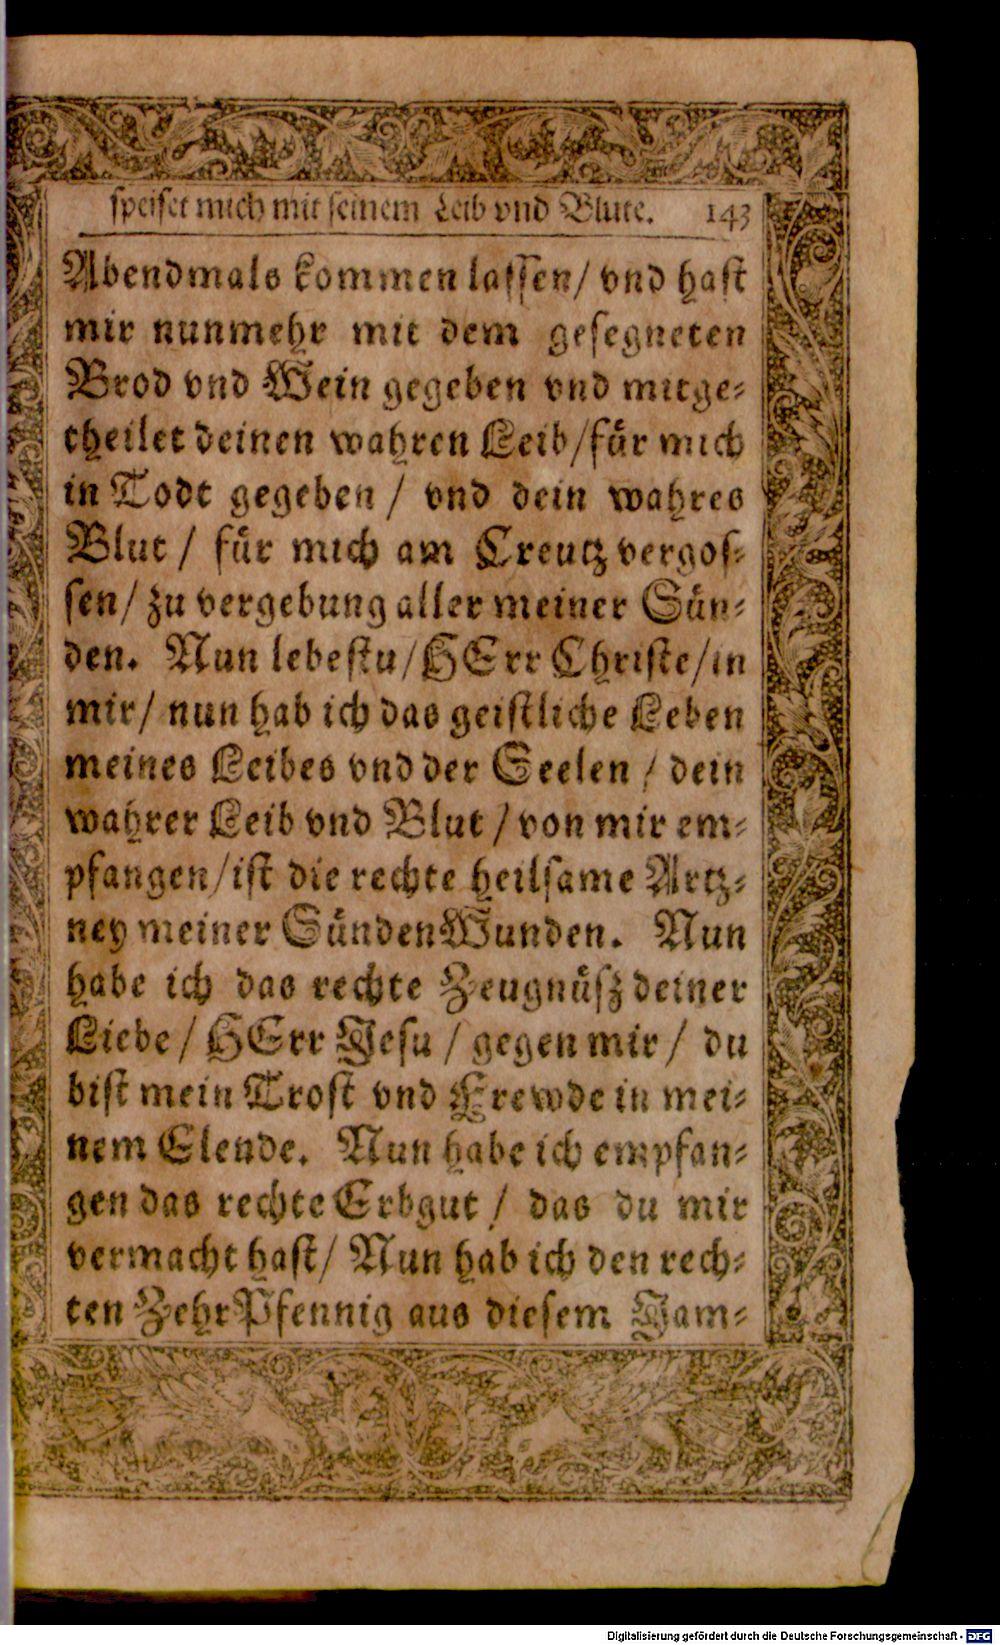 speiset mich mit seinem Leib vnd Blute. 143
Abendmals kommen lassen/ vnd hast
mir nunmehr mit dem gesegneten
Brod vnd Wein gegeben vnd mitge-
theilet deinen wahren Leib/für mich
in Todt gegeben / vnd dein wahres
Blut / für mich am Creutz vergos-
sen/ zu vergebung aller meiner Sün-
den. Nun lebestu/HErr Christe/in
mir/ nun hab ich das geistliche Leben
meines Leibes vnd der Seelen / dein
wahrer Leib vnd Blut / von mir em-
pfangen/ist die rechte heilsame Artz-
ney meiner SündenWunden. Nun
habe ich das rechte Zeugnüsz deiner
Liebe / HErr Jesu / gegen mir / du
bist mein Trost vnd Frewde in mei-
nem Elende. Nun habe ich empfan-
gen das rechte Erbgut / das du mir
vermacht hast/ Nun hab ich den rech-
ten ZehrPfennig aus diesem Jam-
Digitalisierung gefördert durch die Deutsche Forschungsgemeinschaft - DFG